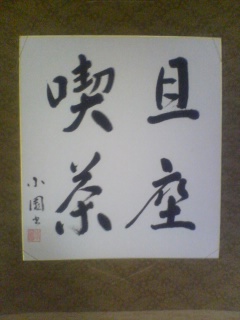 且座
喫茶
小園書